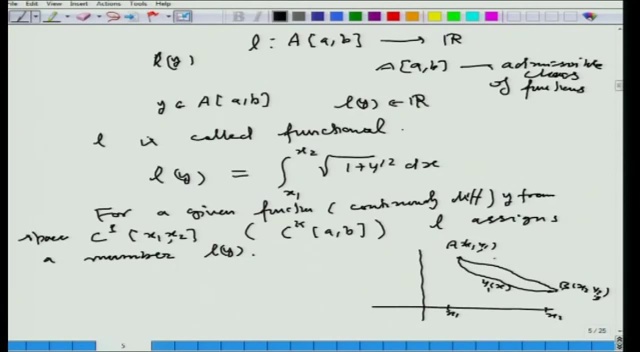 File Edit View Insert Actions Tools Help
l : A[a,b] ⟶ ℝ
l(y)
A[a,b] — admissible class of functions
y ∈ A[a,b] l(y) ∈ ℝ
l is called functional.
l(y) = ∫_{x₁}^{x₂} √(1+y'²) dx
For a given function (continuously diff) y from
space C¹[x₁,x₂] (C¹[a,b]) l assigns
a number l(y).
A(x₁,y₁)
y₁(x)
B(x₂,y₂)
x₁ x₂
5
5 / 25